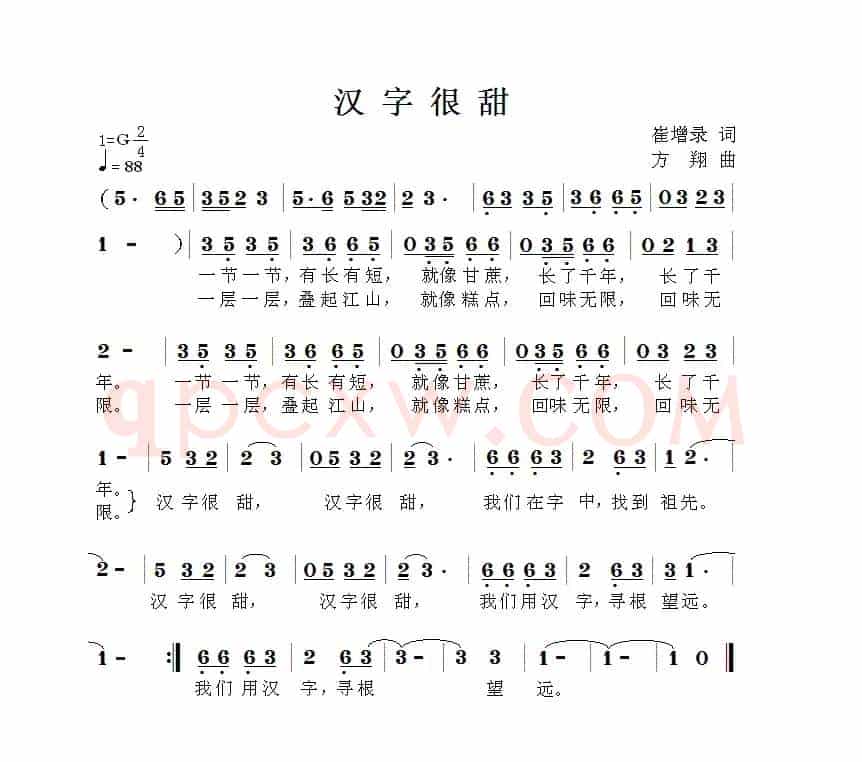 汉字很甜
1=G 2/4
崔增录 词
♩=88
方 翔 曲
(5· 65 | 352 3 | 5·6 532 | 2 3· | 63 35 | 36 65 | 03 23 |
1 - ) | 35 35 | 36 65 | 035 66 | 035 66 | 02 13 |
一节一节，有长有短， 就像甘蔗， 长了千年， 长了千
一层一层，叠起江山， 就像糕点， 回味无限， 回味无
2 - | 35 35 | 36 65 | 035 66 | 035 66 | 03 23 |
年。 一节一节，有长有短， 就像甘蔗， 长了千年， 长了千
限。 一层一层，叠起江山， 就像糕点， 回味无限， 回味无
qpcxw.COM
1 - | 5 32 | 2 3 | 05 32 | 2 3· | 66 63 | 2 63 | 1 2· |
年。
限。} 汉字很甜， 汉字很甜， 我们在字中，找到祖先。
2 - | 5 32 | 2 3 | 05 32 | 2 3· | 66 63 | 2 63 | 31· |
汉字很甜， 汉字很甜， 我们用汉字，寻根望远。
1 - :| 66 63 | 2 63 | 3 - | 3 3 | 1 - | 1 - | 1 0 |
我们用汉字，寻根 望 远。